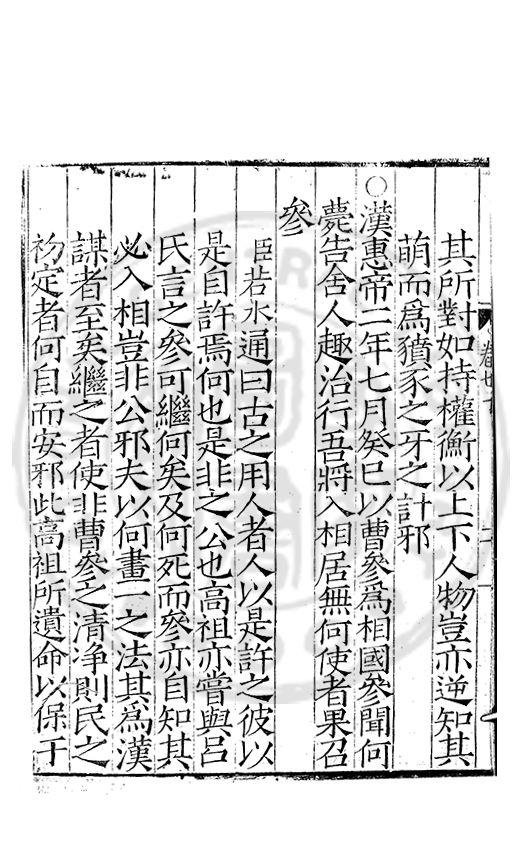 其所對如持權衡以上下人物豈亦逆知其
萌而爲豶豕之牙之計邪
○漢惠帝二年七月癸巳以曹參爲相國參聞何
薨告舍人趣治行吾將入相居無何使者果召
參
臣若水通曰古之用人者人以是許之彼以
是自許焉何也是非之公也高祖亦嘗與呂
氏言之參可繼何矣及何死而參亦自知其
必入相豈非公邪夫以何畫一之法其爲漢
謀者至矣繼之者使非曹參之清净則民之
初定者何自而安邪此高祖所遺命以保于